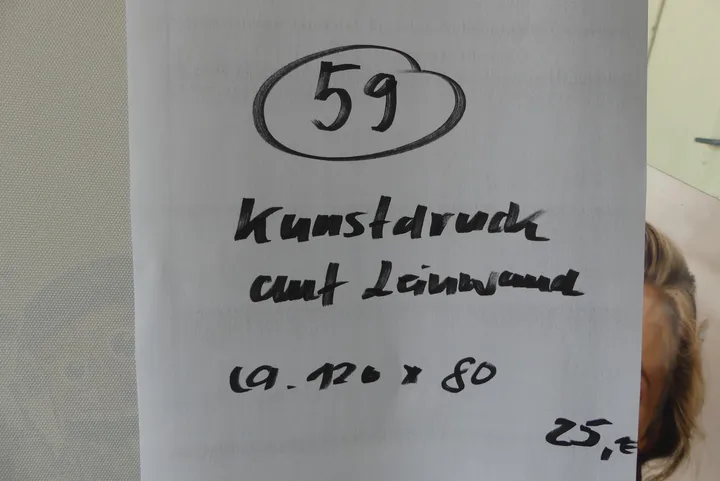 59
Kunstdruck
auf Leinwand
ca. 120 x 80
25,€